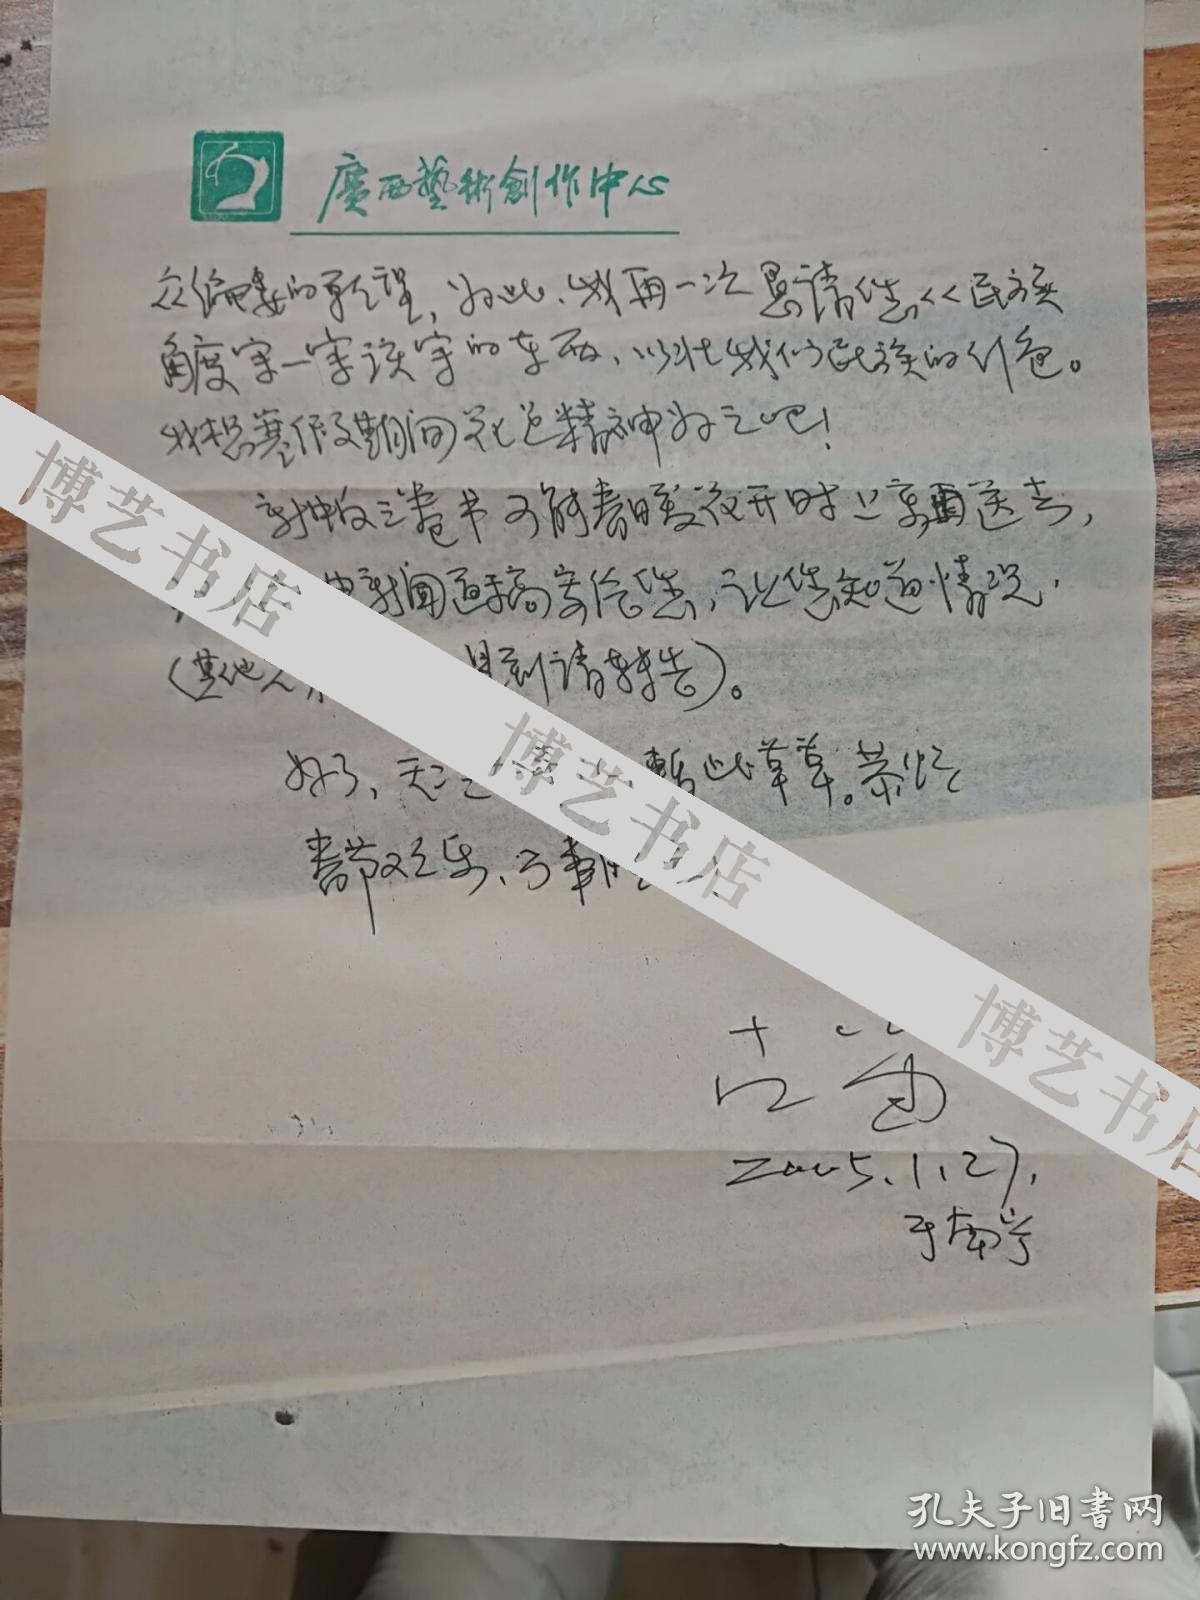 廣西藝術創作中心
众编委的重望，为此，我再一次恳请您从民族
角度写一写该写的东西，以壮我们民族的行色。
我想寒假期间花些精神为之吧！
三卷书可能春暖花开时上京再送去，
新闻通稿寄给您，让您知道情况，
（其他人 见到请转告）。
好了，暂此草草。恭贺
春节之乐，
2005.1.27.
于南宁
博艺书店
博艺书店
博艺书店
孔夫子旧书网
www.kongfz.com